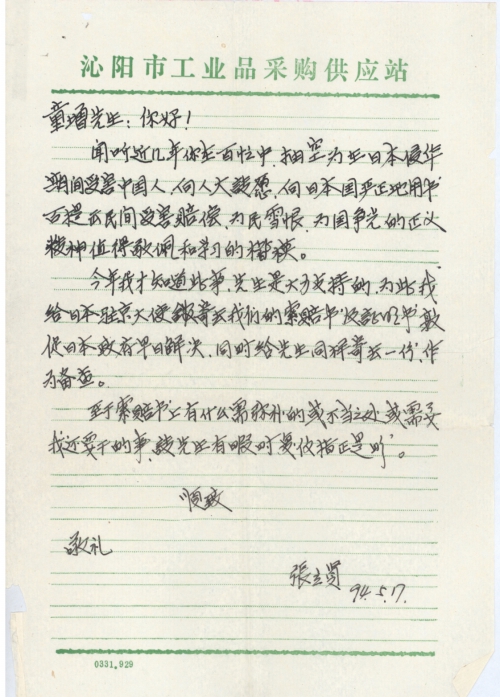 沁阳市工业品采购供应站
童增先生：你好！
闻听近几年你在百忙中，抽空为在日本侵华
期间受害中国人，向人大致意，向日本国严正地用书
面提出民间受害赔偿，为民雪恨，为国争光的正义
精神值得敬佩和学习的楷模。
今年我才知道此事，先生是大力支持的，为此我
给日本驻京大使馆寄去我们的索赔书及证明书，敦
促日本政府早日解决，同时给先生同样寄去一份，作
为备查。
至于索赔书上有什么需弥补的或不当之处，或需要
我还要干的事，先生有暇时复仪指正是盼。
顺致
敬礼
張立贤
94.5.17.
0331.929